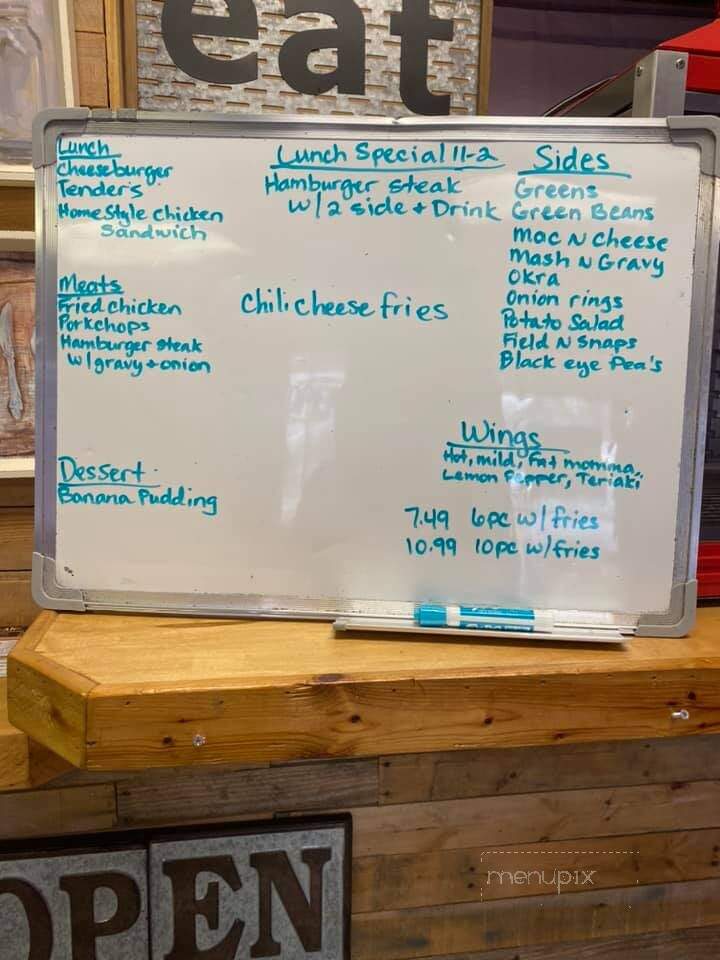 eat
Lunch
Cheeseburger
Tenders
Home Style chicken
Sandwich
Meats
Fried chicken
Porkchops
Hamburger steak
w/gravy + onion
Dessert
Banana Pudding
Lunch Special 11-2
Hamburger steak
w/2 side + Drink
Chili cheese fries
Sides
Greens
Green Beans
Mac N Cheese
Mash N Gravy
Okra
Onion rings
Potato Salad
Field N Snaps
Black eye Pea's
Wings
Hot, mild, Fat momma,
Lemon Pepper, Teriaki
7.49 6pc w/fries
10.99 10pc w/fries
OPEN
menupix